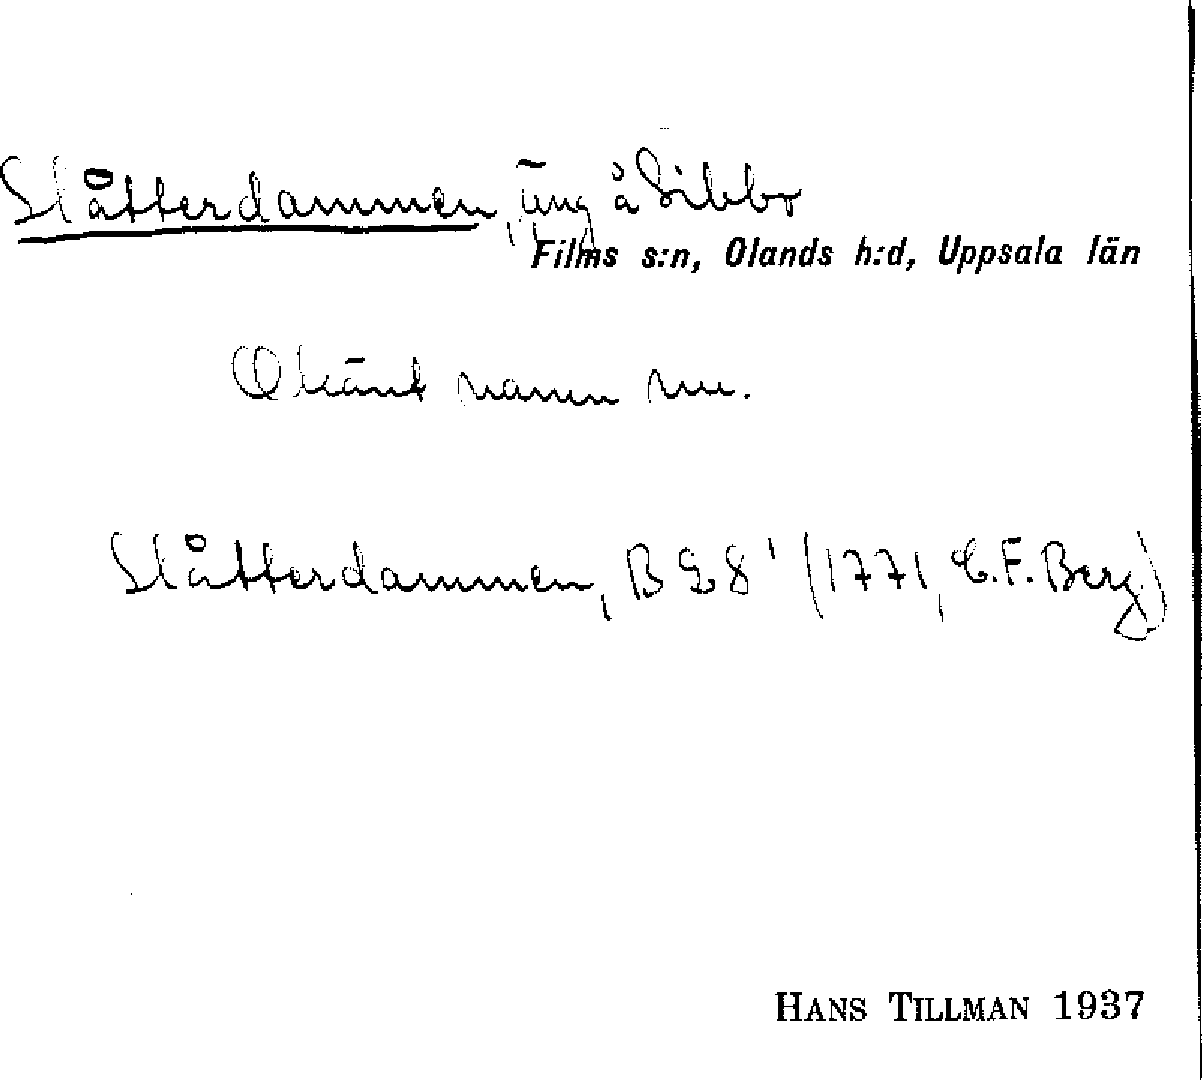 Slåtterdammen, äng å Sibbo
Films s:n, Olands h:d, Uppsala län
Okänt namn nu.
Slåtterdammen, B 98¹ (1771, C.F. Berg.)
HANS TILLMAN 1937